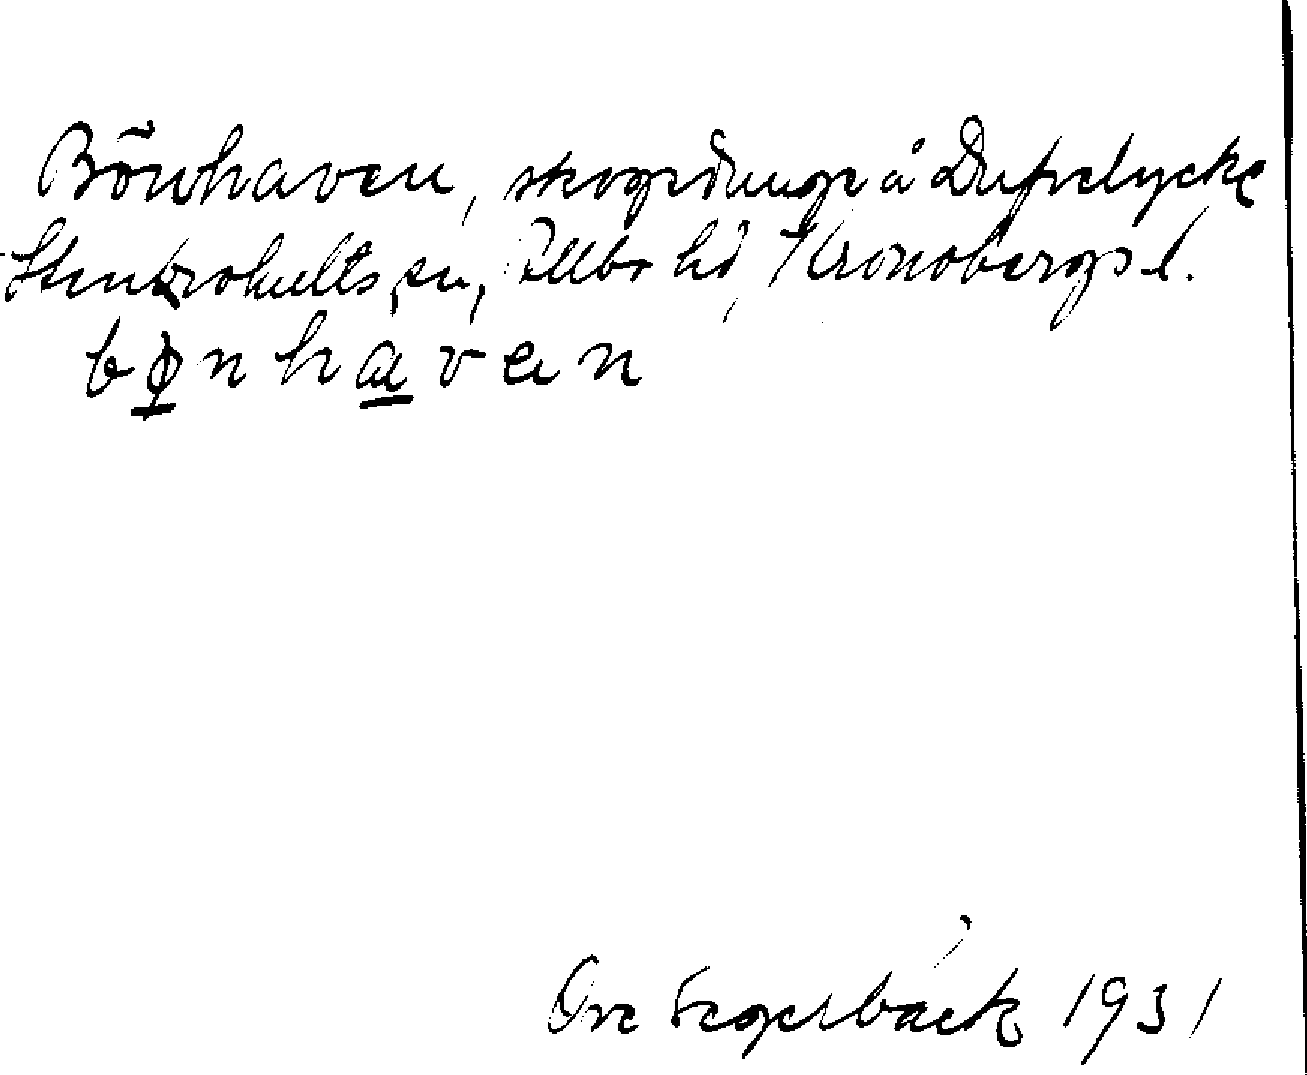 Bönhaven, skogsdunge å Dufvelycke
Stenbrohults sn, Allbo hd, Kronobergs l.
bønhaven
Ove Segerbäck 1931